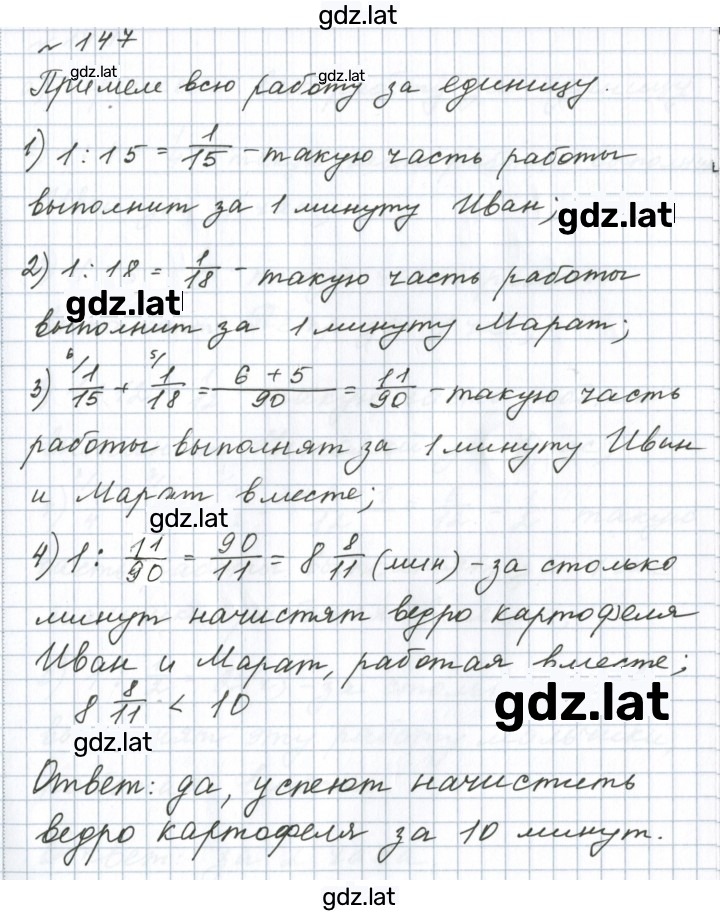 gdz.lat
№ 147
gdz.lat
gdz.lat
Примем всю работу за единицу.
1) 1 : 15 = 1/15 - такую часть работы
выполнит за 1 минуту Иван;
gdz.lat
2) 1 : 18 = 1/18 - такую часть работы
gdz.lat
выполнит за 1 минуту Марат;
3) 6/ 1/15 + 5/ 1/18 = 6 + 5/90 = 11/90 - такую часть
работы выполнят за 1 минуту Иван
и Марат вместе;
gdz.lat
4) 1 : 11/90 = 90/11 = 8 8/11 (мин) - за столько
минут начистят ведро картофеля
Иван и Марат, работая вместе;
8 8/11 < 10
gdz.lat
gdz.lat
Ответ: да, успеют начистить
ведро картофеля за 10 минут.
gdz.lat